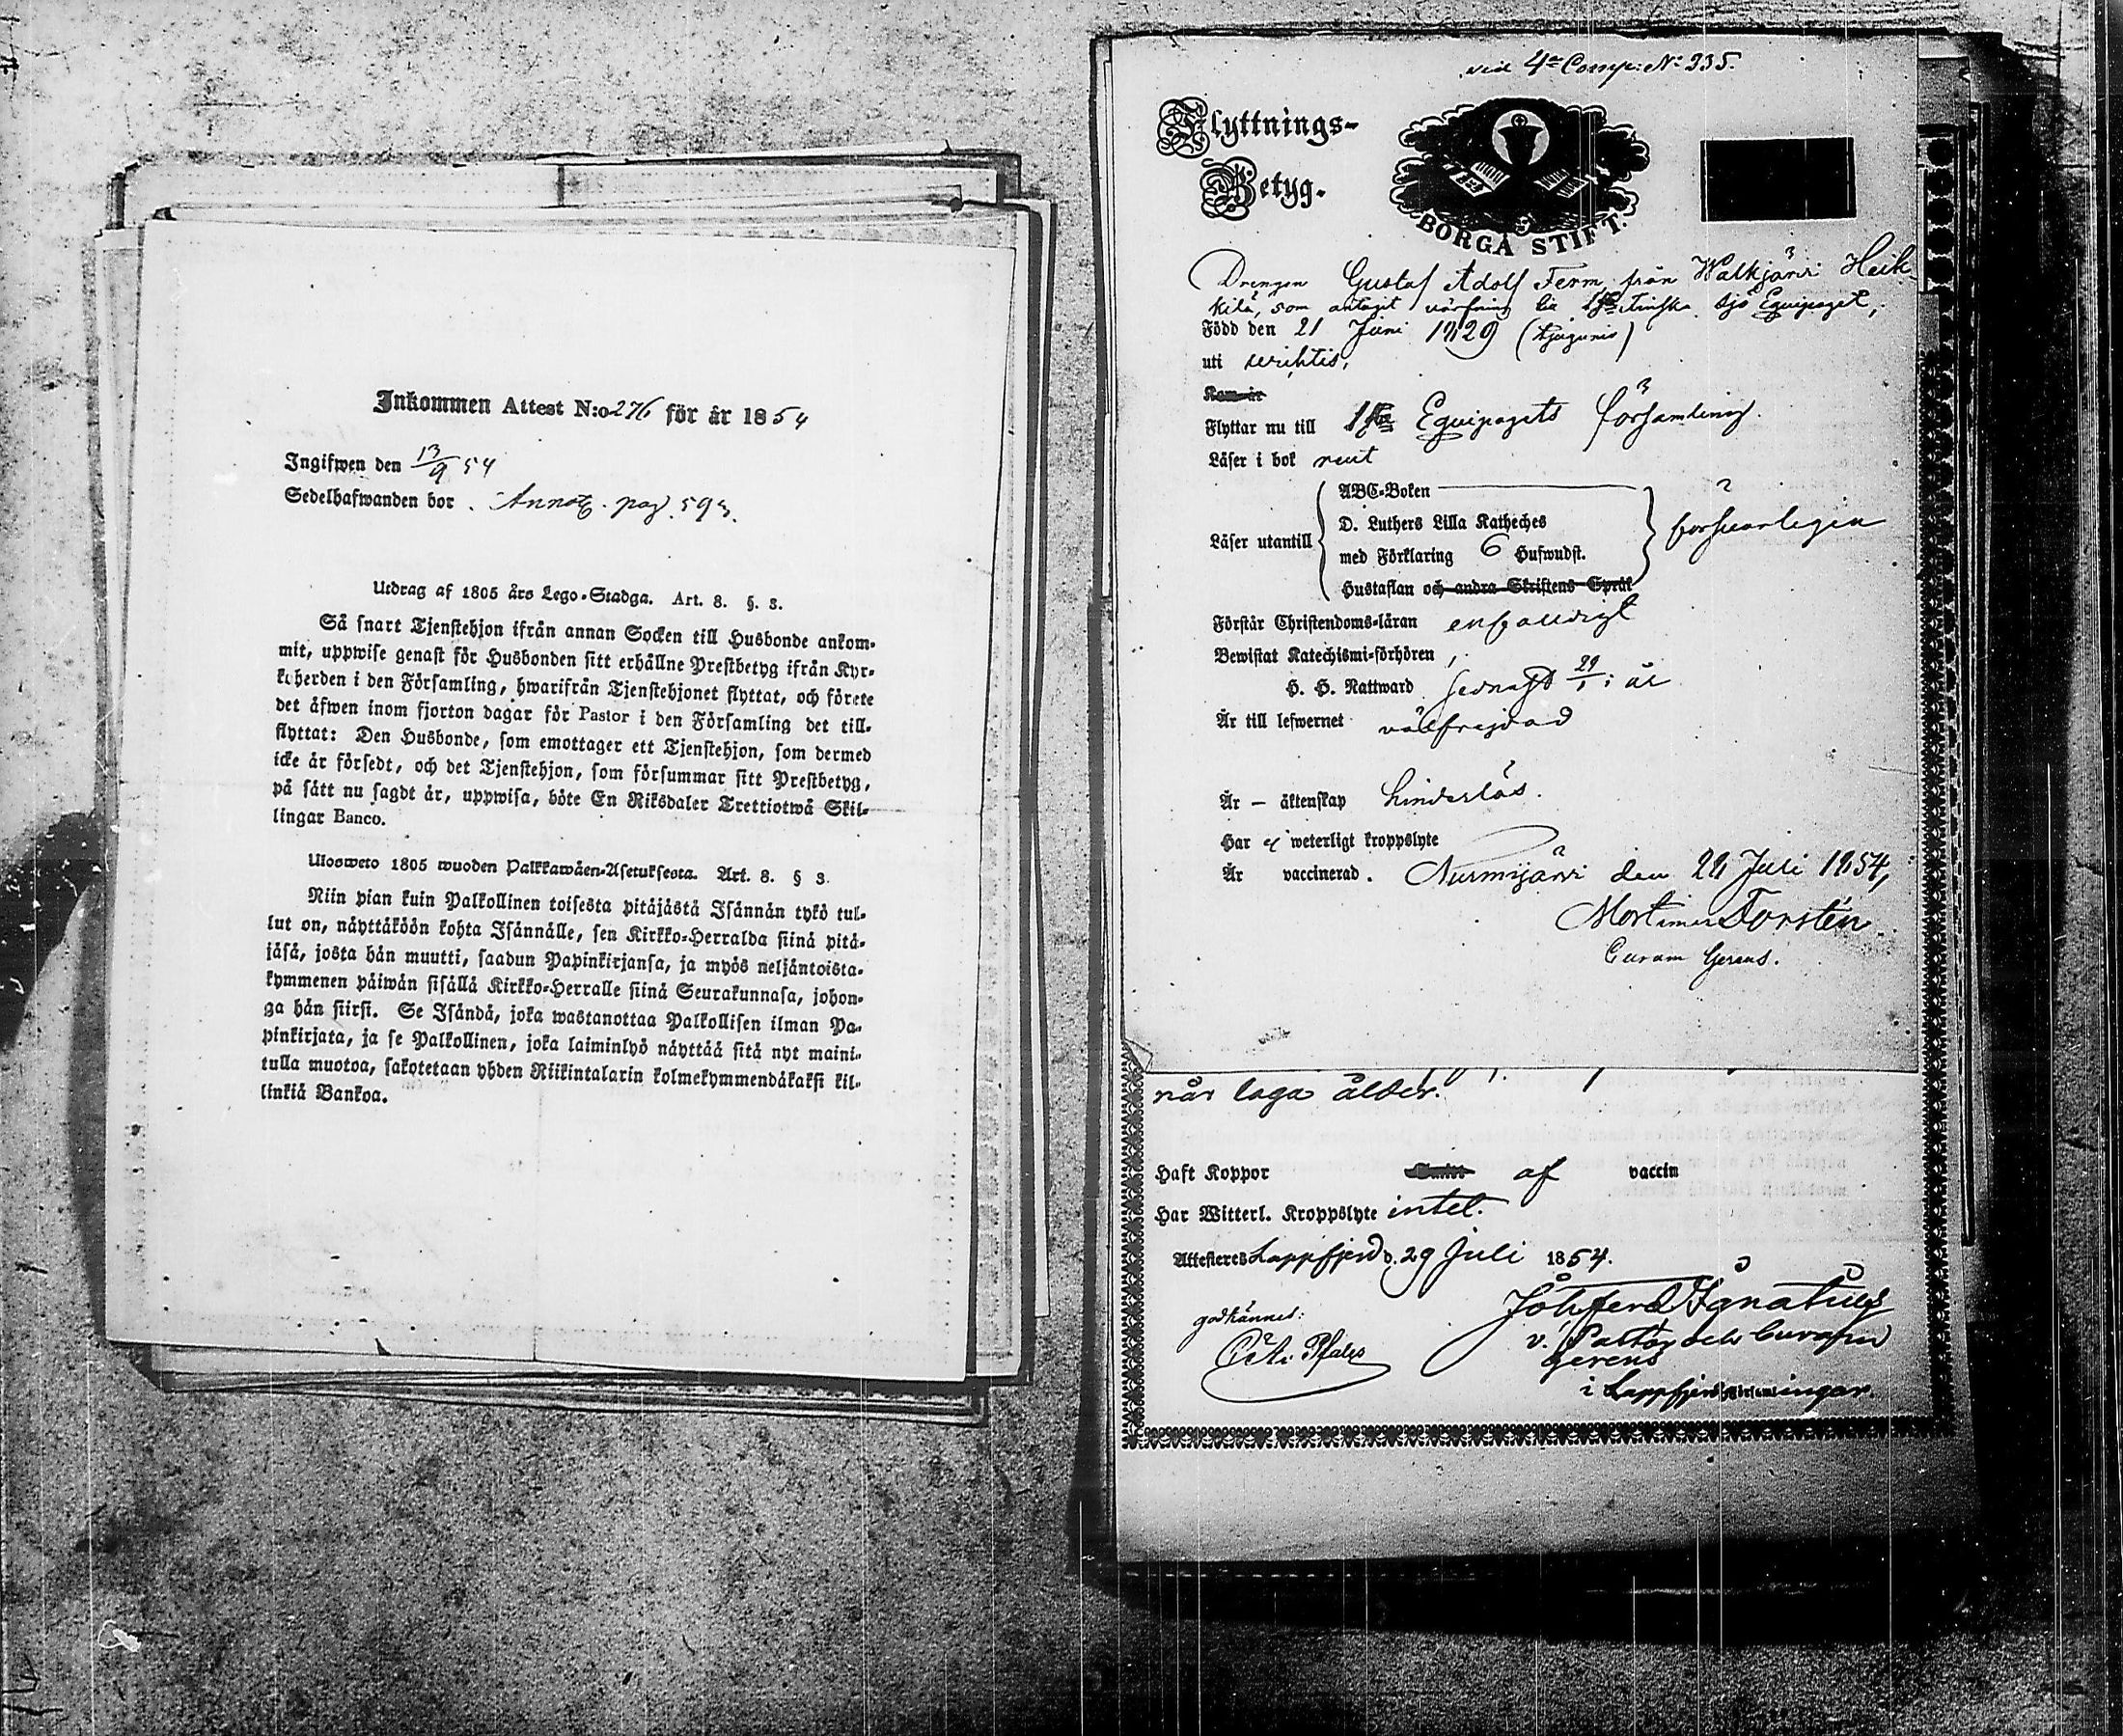 Inkommen Attest N:o 276 för år 1854
Ingifwen den 13/9 54
Sedelhafwanden bor. Annot. pag. 593.
Utdrag af 1805 års Lego-Stadga. Art. 8. §. 3.
Så snart Tjenstehjon ifrån annan Socken till Husbonde ankom-
mit, uppwise genast för Husbonden sitt erhållne Prestbetyg ifrån Kyr-
koherden i den Församling, hwarifrån Tjenstehjonet flyttat, och förete
det äfwen inom fjorton dagar för Pastor i den Församling det till-
flyttat: Den Husbonde, som emottager ett Tjenstehjon, som dermed
icke är försedt, och det Tjenstehjon, som försummar sitt Prestbetyg,
på sätt nu sagdt är, uppwisa, böte En Riksdaler Trettiotwå Skil-
lingar Banco.
Uloosweto 1805 wuoden Palkkawäen-Asetuksesta. Art. 8. § 3.
Niin pian kuin Palkollinen toisesta pitäjästä Isännän tykö tul-
lut on, näyttäköön kohta Isännälle, sen Kirkko-Herralda siinä pitä-
jäsä, josta hän muutti, saadun Papinkirjansa, ja myös neljäntoista-
kymmenen päiwän sisällä Kirkko-Herralle siinä Seurakunnasa, johon-
ga hän siirsi. Se Isändä, joka wastanottaa Palkollisen ilman Pa-
pinkirjata, ja se Palkollinen, joka laiminlyö näyttää sitä nyt maini-
tulla muotoa, sakotetaan yhden Riikintalarin kolmekymmendäkaksi kil-
linkiä Bankoa.
vid 4de Comp: No 235.
Flyttnings-
Betyg.
BORGÅ STIFT.
Drengen Gustaf Adolf Ferm från Walkjärvi Heik-
kilä, som antagit värfning till 1sta Finska Sjö Equipaget,
Född den 21 Juni 1829 (tjugunio)
uti
Kom år
Flyttar nu till 1sta Equipagets församling.
Läser i bok rent
Läser utantill
ABC-Boken
D. Luthers Lilla Katheches
med Förklaring 6 Hufwudst.
Hustaflan och andra Skriftens Språk
försvarligen
Förstår Christendoms-läran enfaldigt
Bewistat Katechismi-förhören,
H. H. Nattward sednast 29/1 i år
Är till lefwernet välfrejdad
Är – äktenskap hinderlös.
Har ej weterligt kroppslyte
Är vaccinerad. Nurmijärvi den 22 Juli 1854,
Mortimer Forstén
Curam Gerens.
når laga ålder.
Haft Koppor af vaccin
Har Witterl. Kroppslyte intet.
Attesteres Lappfjerd d. 29 Juli 1854.
godkännes:
Joh. Ferd. Ignatius
v. Pastor och Curam
gerens
i Lappfjerds församlingar.